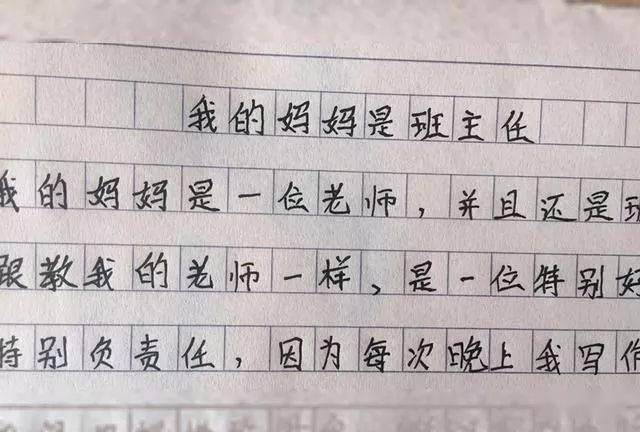 我的妈妈是班主任
我的妈妈是一位老师，并且还是班
跟教我的老师一样，是一位特别好
特别负责任，因为每次晚上我写作